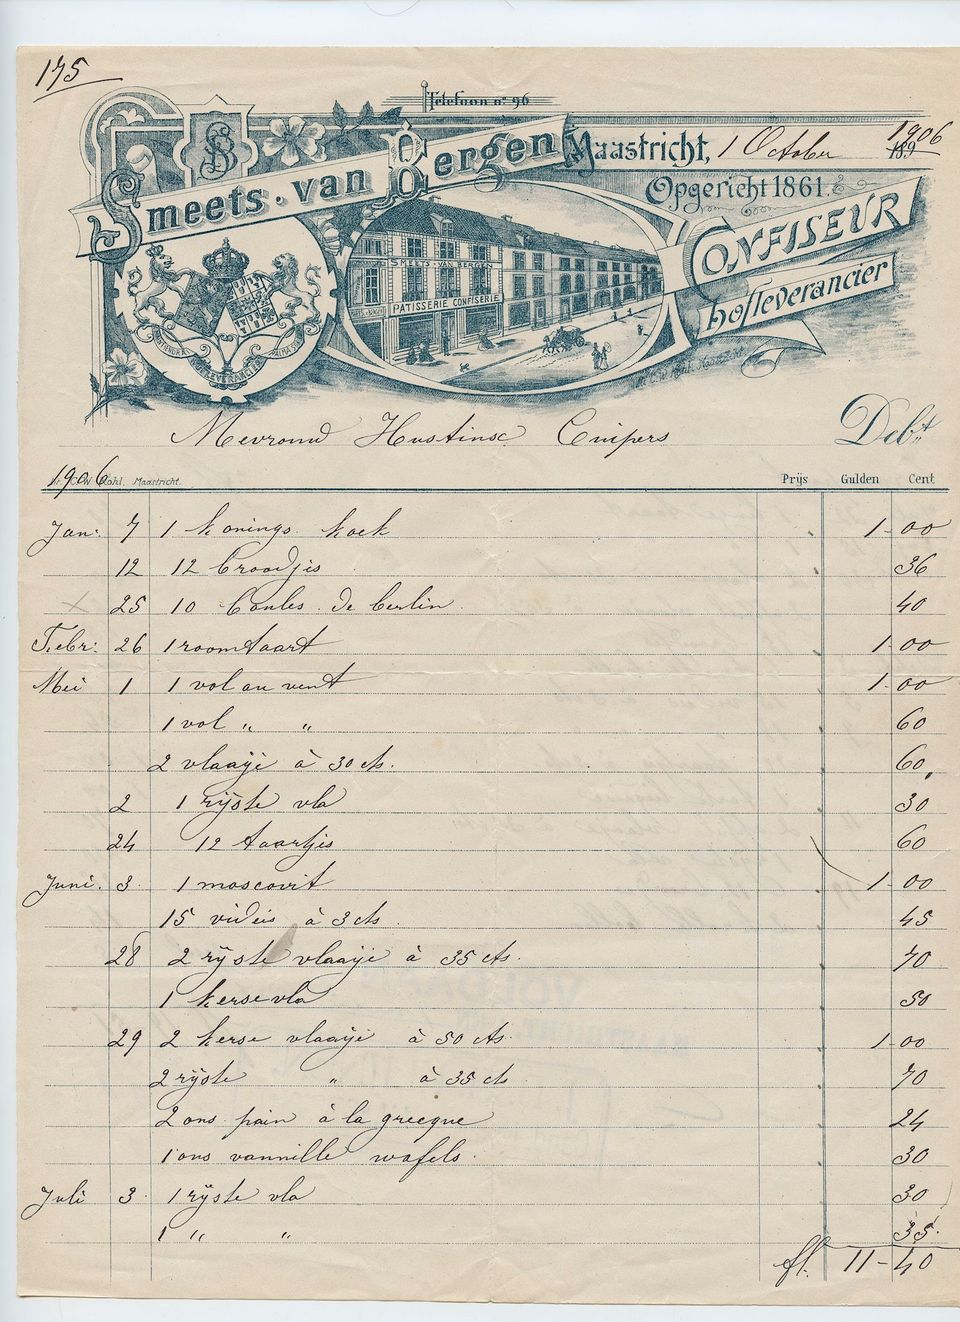 175
Telefoon nº 96
Smeets-van Bergen
Maastricht, 1 October 1906
189
Opgericht 1861.
Confiseur
hofleverancier
SB
SMEETS-VAN BERGEN
PATISSERIE CONFISERIE
HOFLEVERANCIER
Mevrouw Hustinx Cuipers Debt
1906 Maastricht. Prijs Gulden Cent
Jan: 7 1 konings koek 1-00
12 12 broodjes 36
x 25 10 boules de berlin 40
Febr: 26 1 roomtaart 1-00
Mei 1 1 vol au vent 1-00
1 vol " " 60
2 vlaaije à 30 cts. 60
2 1 rijste vla 30
24 12 taartjes 60
Juni. 3. 1 moscovit 1-00
15 videis à 3 cts. 45
28 2 rijste vlaaije à 35 cts. 70
1 kerse vla 50
29 2 kerse vlaaije à 50 cts. 1-00
2 rijste " à 35 cts 70
2 ons pain à la grecque 24
1 ons vannille wafels. 30
Juli 3. 1 rijste vla 30
1 " " 35.
fl. 11-40